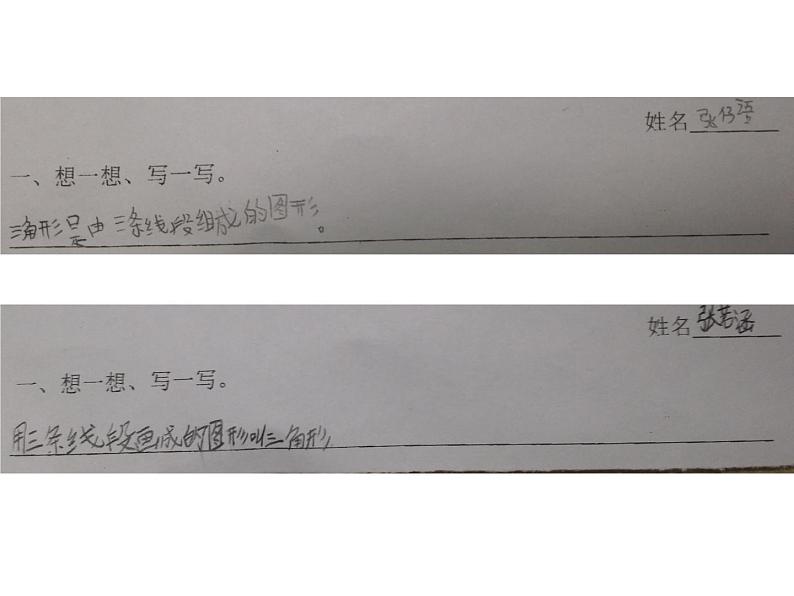 姓名 张伊语
一、想一想、写一写。
三角形是由三条线段组成的图形。
姓名 张若涵
一、想一想、写一写。
用三条线段画成的图形叫三角形